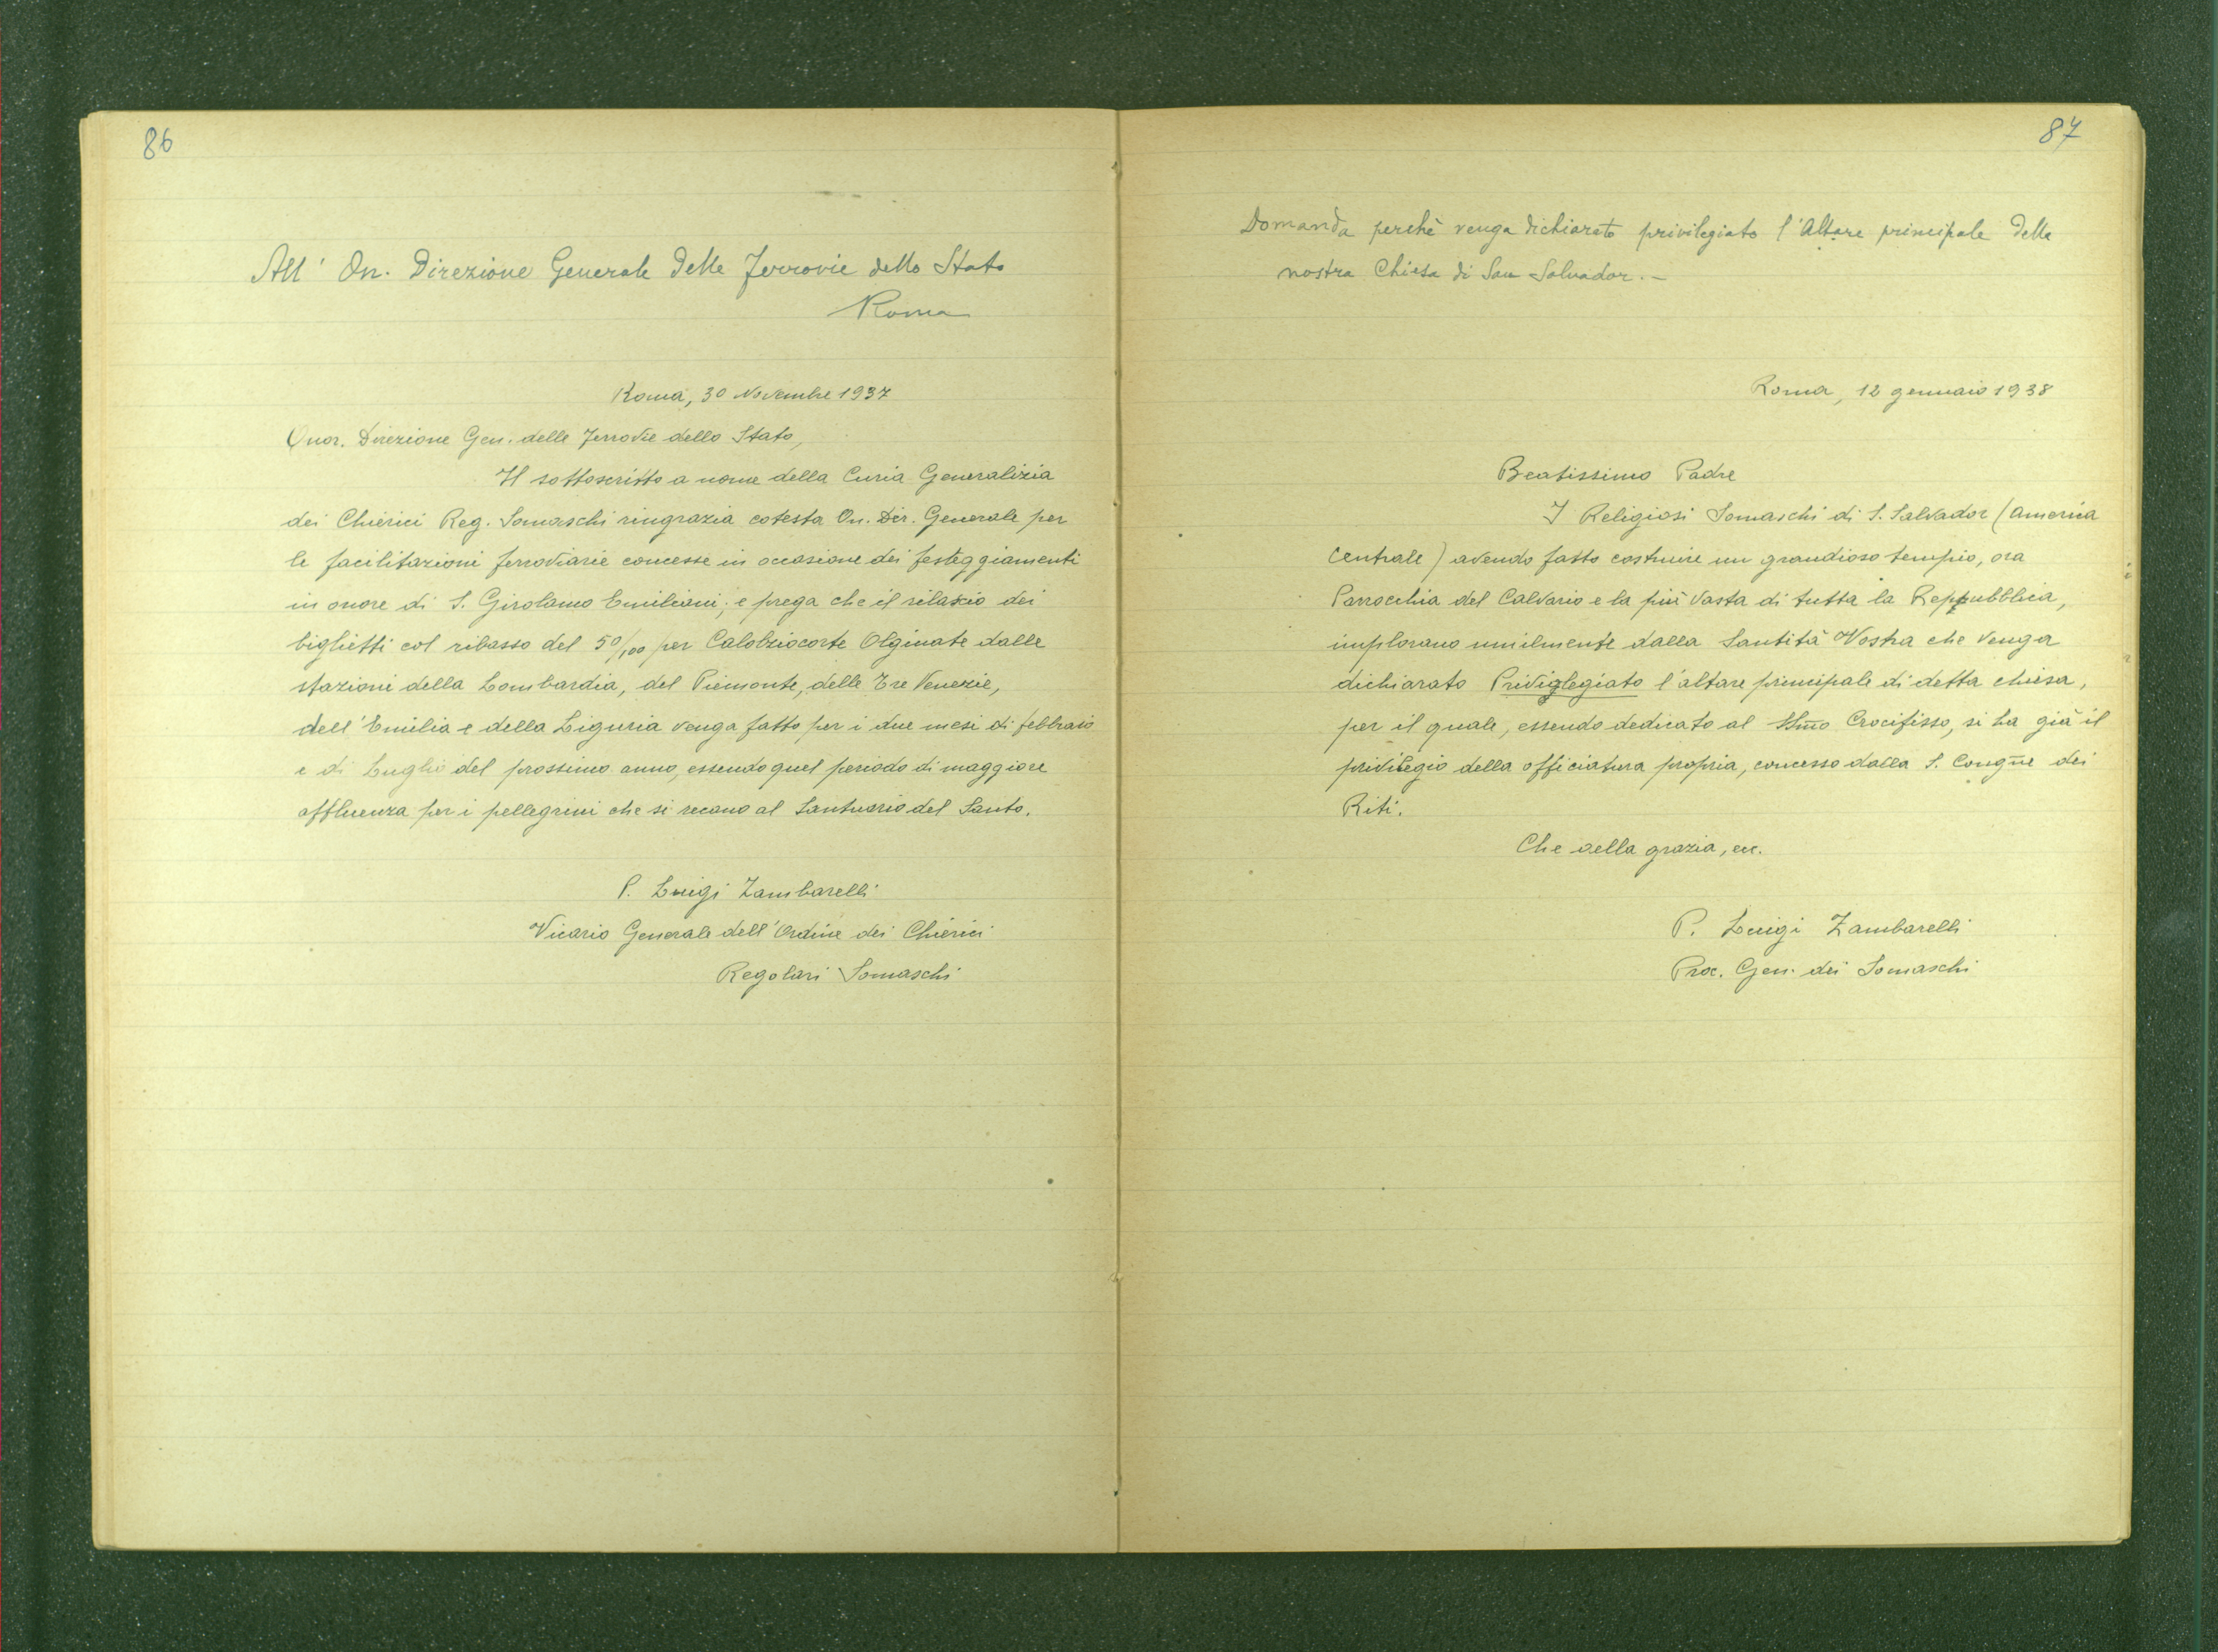 86
All' On. Direzione Generale delle Ferrovie dello Stato
Roma
Roma, 30 Novembre 1937
Onor. Direzione Gen. delle Ferrovie dello Stato,
Il sottoscritto a nome della Curia Generalizia
dei Chierici Reg. Somaschi ringrazia cotesta On. Dir. Generale per
le facilitazioni ferroviarie concesse in occasione dei festeggiamenti
in onore di S. Girolamo Emiliani; e prega che il rilascio dei
biglietti col ribasso del 50/100 per Calolziocorte Olginate dalle
stazioni della Lombardia, del Piemonte, delle Tre Venezie,
dell'Emilia e della Liguria venga fatto per i due mesi di febbraio
e di Luglio del prossimo anno, essendo quel periodo di maggiore
affluenza per i pellegrini che si recano al Santuario del Santo.
P. Luigi Zambarelli
Vicario Generale dell'Ordine dei Chierici
Regolari Somaschi
87
Domanda perchè venga dichiarato privilegiato l'Altare principale della
nostra Chiesa di San Salvador. –
Roma, 12 gennaio 1938
Beatissimo Padre
I Religiosi Somaschi di S. Salvador (America
Centrale) avendo fatto costruire un grandioso tempio, ora
Parrocchia del Calvario e la più vasta di tutta la Reppubblica,
implorano umilmente dalla Santità Vostra che venga
dichiarato Priviglegiato l'altare principale di detta chiesa,
per il quale, essendo dedicato al SSm̄o Crocifisso, si ha già il
privilegio della officiatura propria, concesso dalla S. Congn̄e dei
Riti.
Che della grazia, ecc.
P. Luigi Zambarelli
Proc. Gen. dei Somaschi